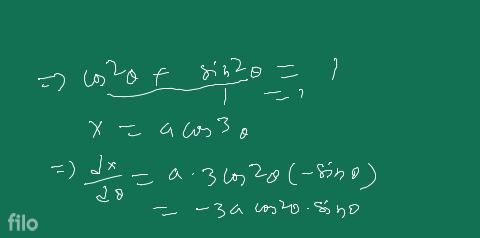 ⇒ cos²θ + sin²θ = 1
1 = 1
x = a cos³θ
⇒) dx/dθ = a · 3cos²θ (-sinθ)
= -3a cos²θ · sinθ
filo